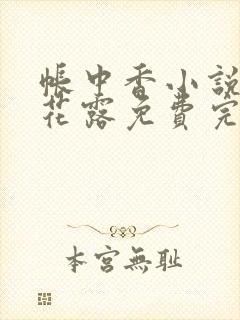 帳中香小說
花露免費完
本宮無耻